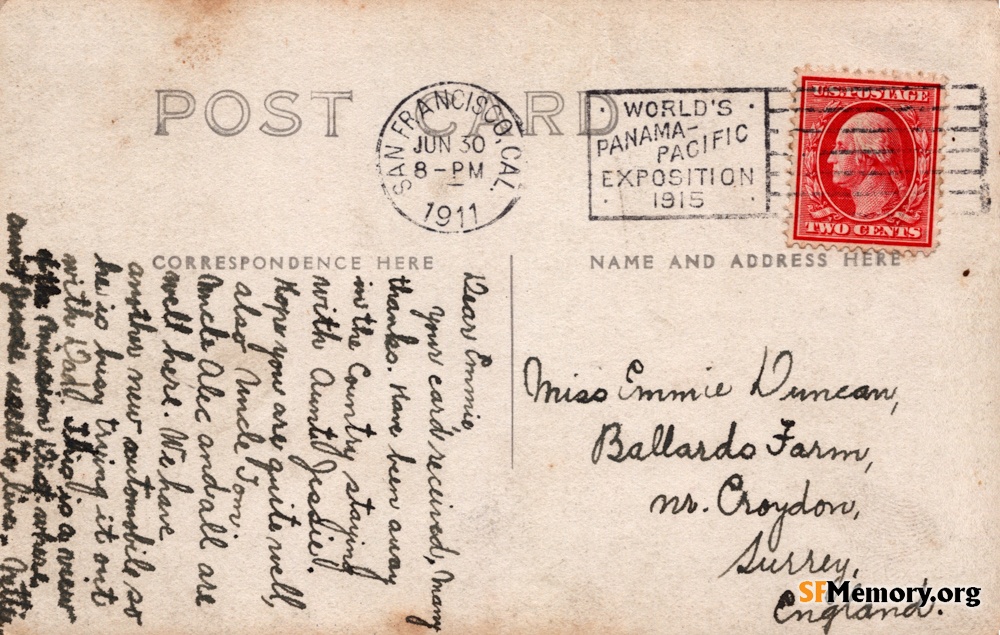 POST CARD
SAN FRANCISCO, CAL
JUN 30
8-PM
1911
WORLD'S
PANAMA-
PACIFIC
EXPOSITION
1915
U.S. POSTAGE
TWO CENTS
CORRESPONDENCE HERE
NAME AND ADDRESS HERE
Dear Emmie,
Your card received, many
thanks. Have been away
in the Country staying
with Aunt Jessdie.
Hope you are quite well,
also Uncle Tom.
Uncle Alec and all are
well here. We have
another new automobile so
he is busy trying it out
with Dad. This is a view
of the Mission Dist where
used to live.
Miss Emmie Duncan,
Ballards Farm,
nr. Croydon,
Surrey,
England.
SFMemory.org